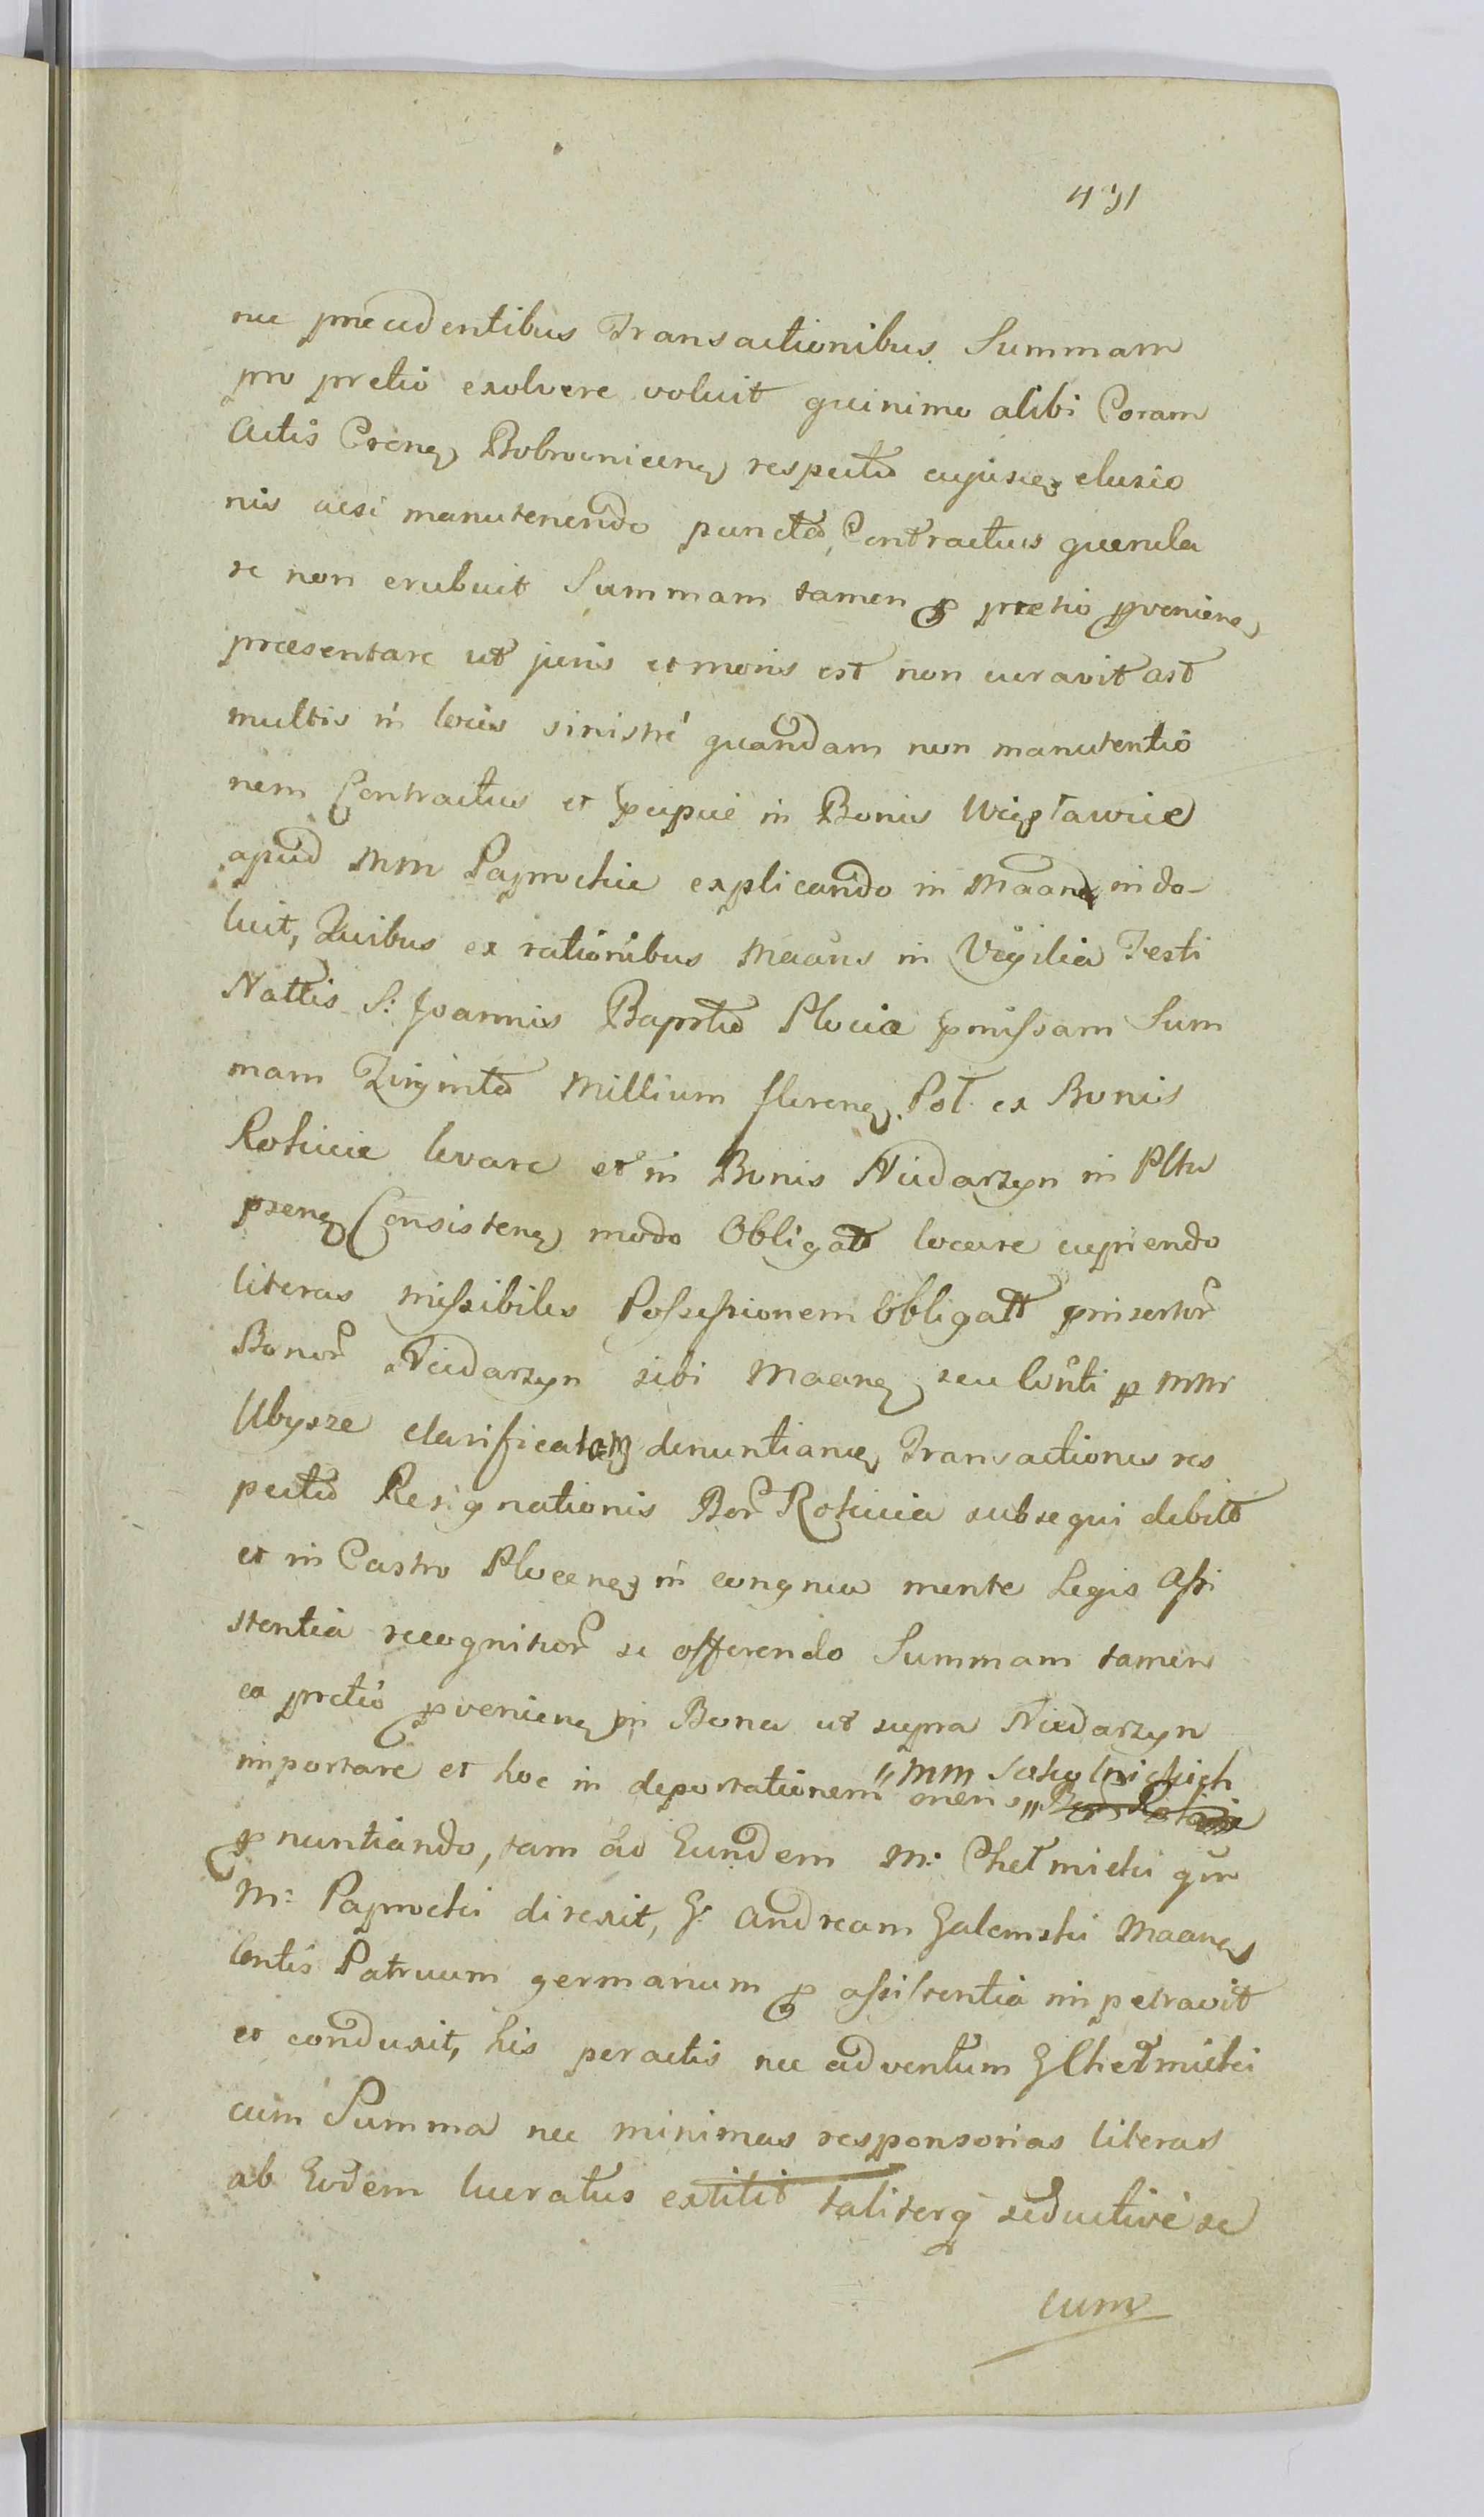 491
nec praecedentibus Transactionibus Summam
pro pretio exolvere voluit quinimo alibi Coram
Actis Crenq Bobrovnicenq respectu cujusq elusio
nis acsi manutenendo puncta Contractus querula
re non erubuit Summam tamen p pretio pvenienq
praesentare ut juris et moris est non curavit ast
multis in locis sinistrè quandam non manutentio
nem Contractus et pcipuè in Bonis
apud MM Paprockie explicando in Maanq indo-
luit, Quibus ex rationibus Maans in Vigilia Festi
Nattis S: Joannis Baptta Plocia pmissam Sum
mam Triginta Millium florenq Pol. ex Bonis
Rokicie levare et in Bonis Niedarzyn in Pltu
psenq Consistenq modo Obligatt locare cupiendo
literas missibiles Possessionem Obligatt pinsertor
Bonor Niedarzyn sibi Maanq seu p MM
Ubysze denuntianq Transactionis res
pectu Resignationis Bor Rokicia subsequi debito
et in Castro Plocenq in congrua mente Legis Assi
stentia recognitior se offerendo Summam tamen
ex pretio pvenienq in Bona ut supra Niedarzyn
importare et hoc in deportationem oneris „MM Sokolnickich
pnuntiando, tam ad Eundem M: Chełmicki qm
M: Paprocki direxit, G: Andream Zalemski Maanq
lentis Patruum germanum p assistentia impetravit
et conduxit, his peractis nec adventum G Chełmicki
cum Summa nec minimas responsorias literas
ab Eodem lucratus extitit taliterq seductivè se
cum